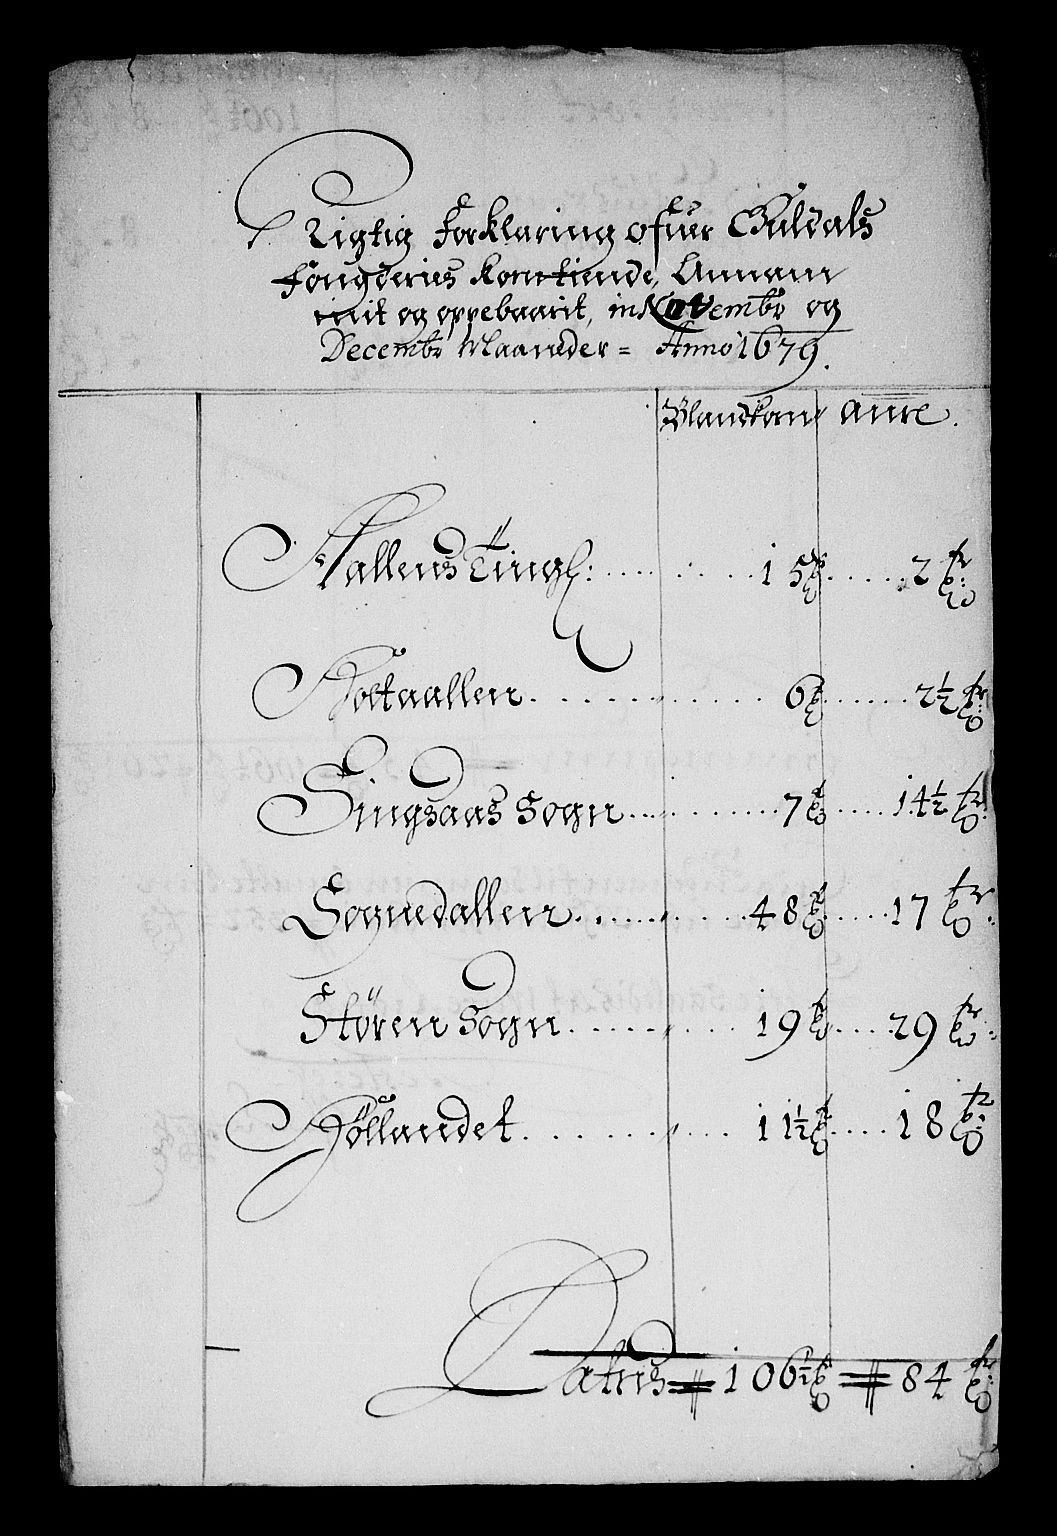 Rigtig Forklaring ofuer Guldals
Fougderies Korntiende, Annam
mit og oppebaarit, in Novembr og
Decembr Maaneder = Anno 1679.
Blandkorn aure.
Aallens Tingl: 15 2
Holtaallen 6 2½
Singsaas Sogn 7 14½
Sognedallen 48 17
Støren Sogn 19 29
Høllandet 11½ 18
Latus 106½ 84